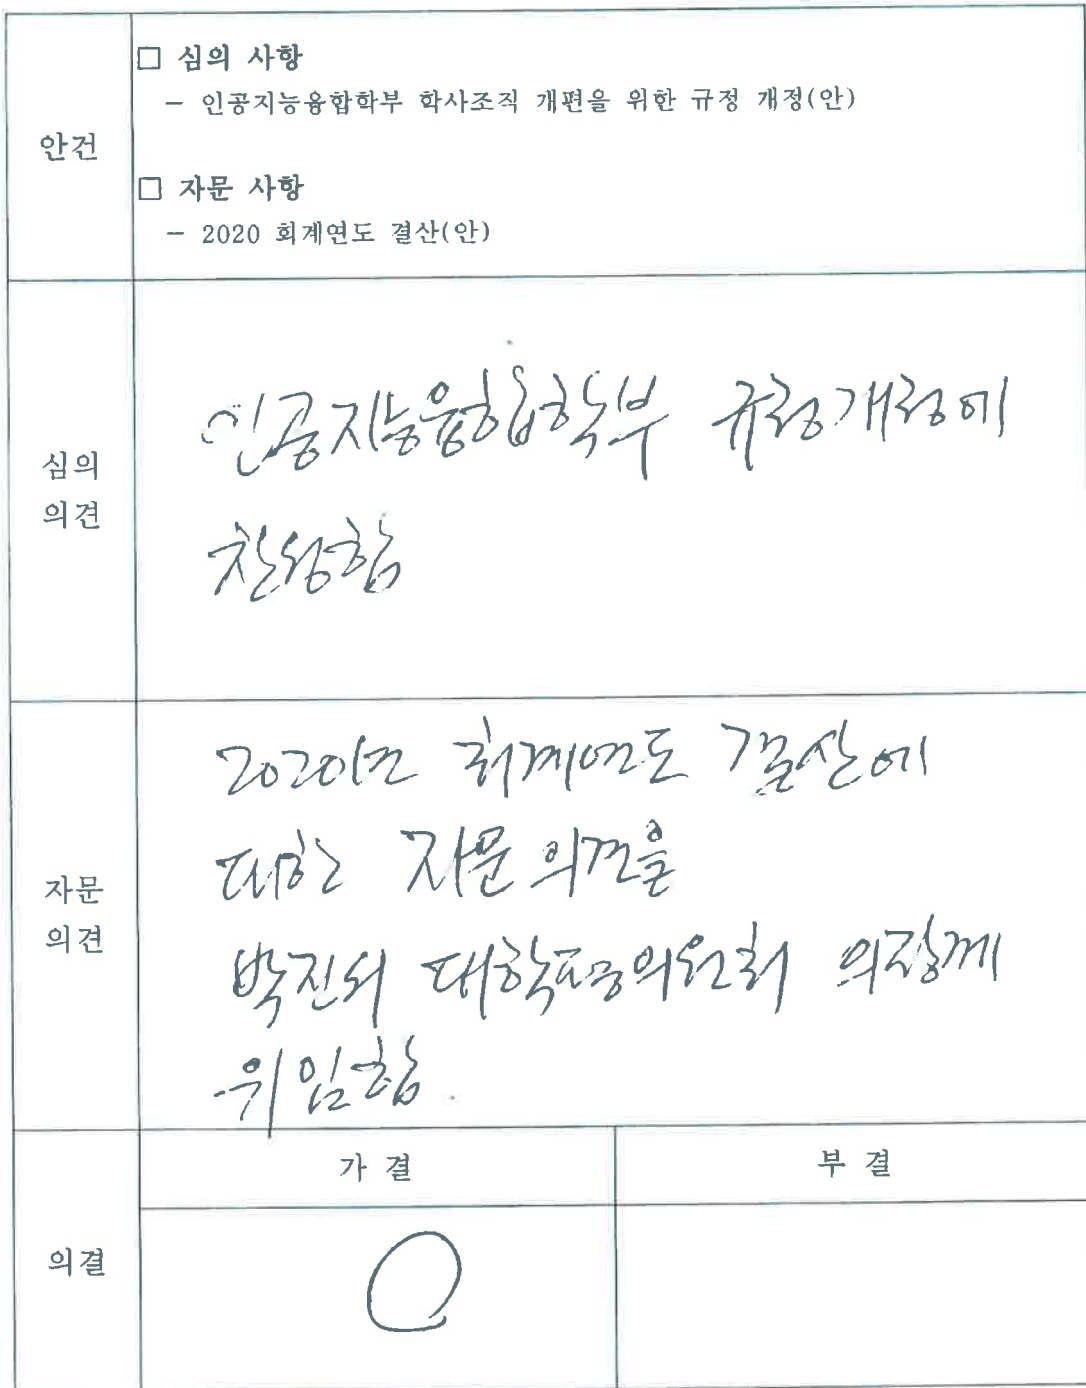 안건
□ 심의 사항
- 인공지능융합학부 학사조직 개편을 위한 규정 개정(안)
□ 자문 사항
- 2020 회계연도 결산(안)
심의
의견
인공지능융합학부 규정개정에
찬성함
자문
의견
2020년 회계연도 결산에
대한 자문 의견을
대학평의원회 의장께
위임함.
의결
가 결
부 결
○